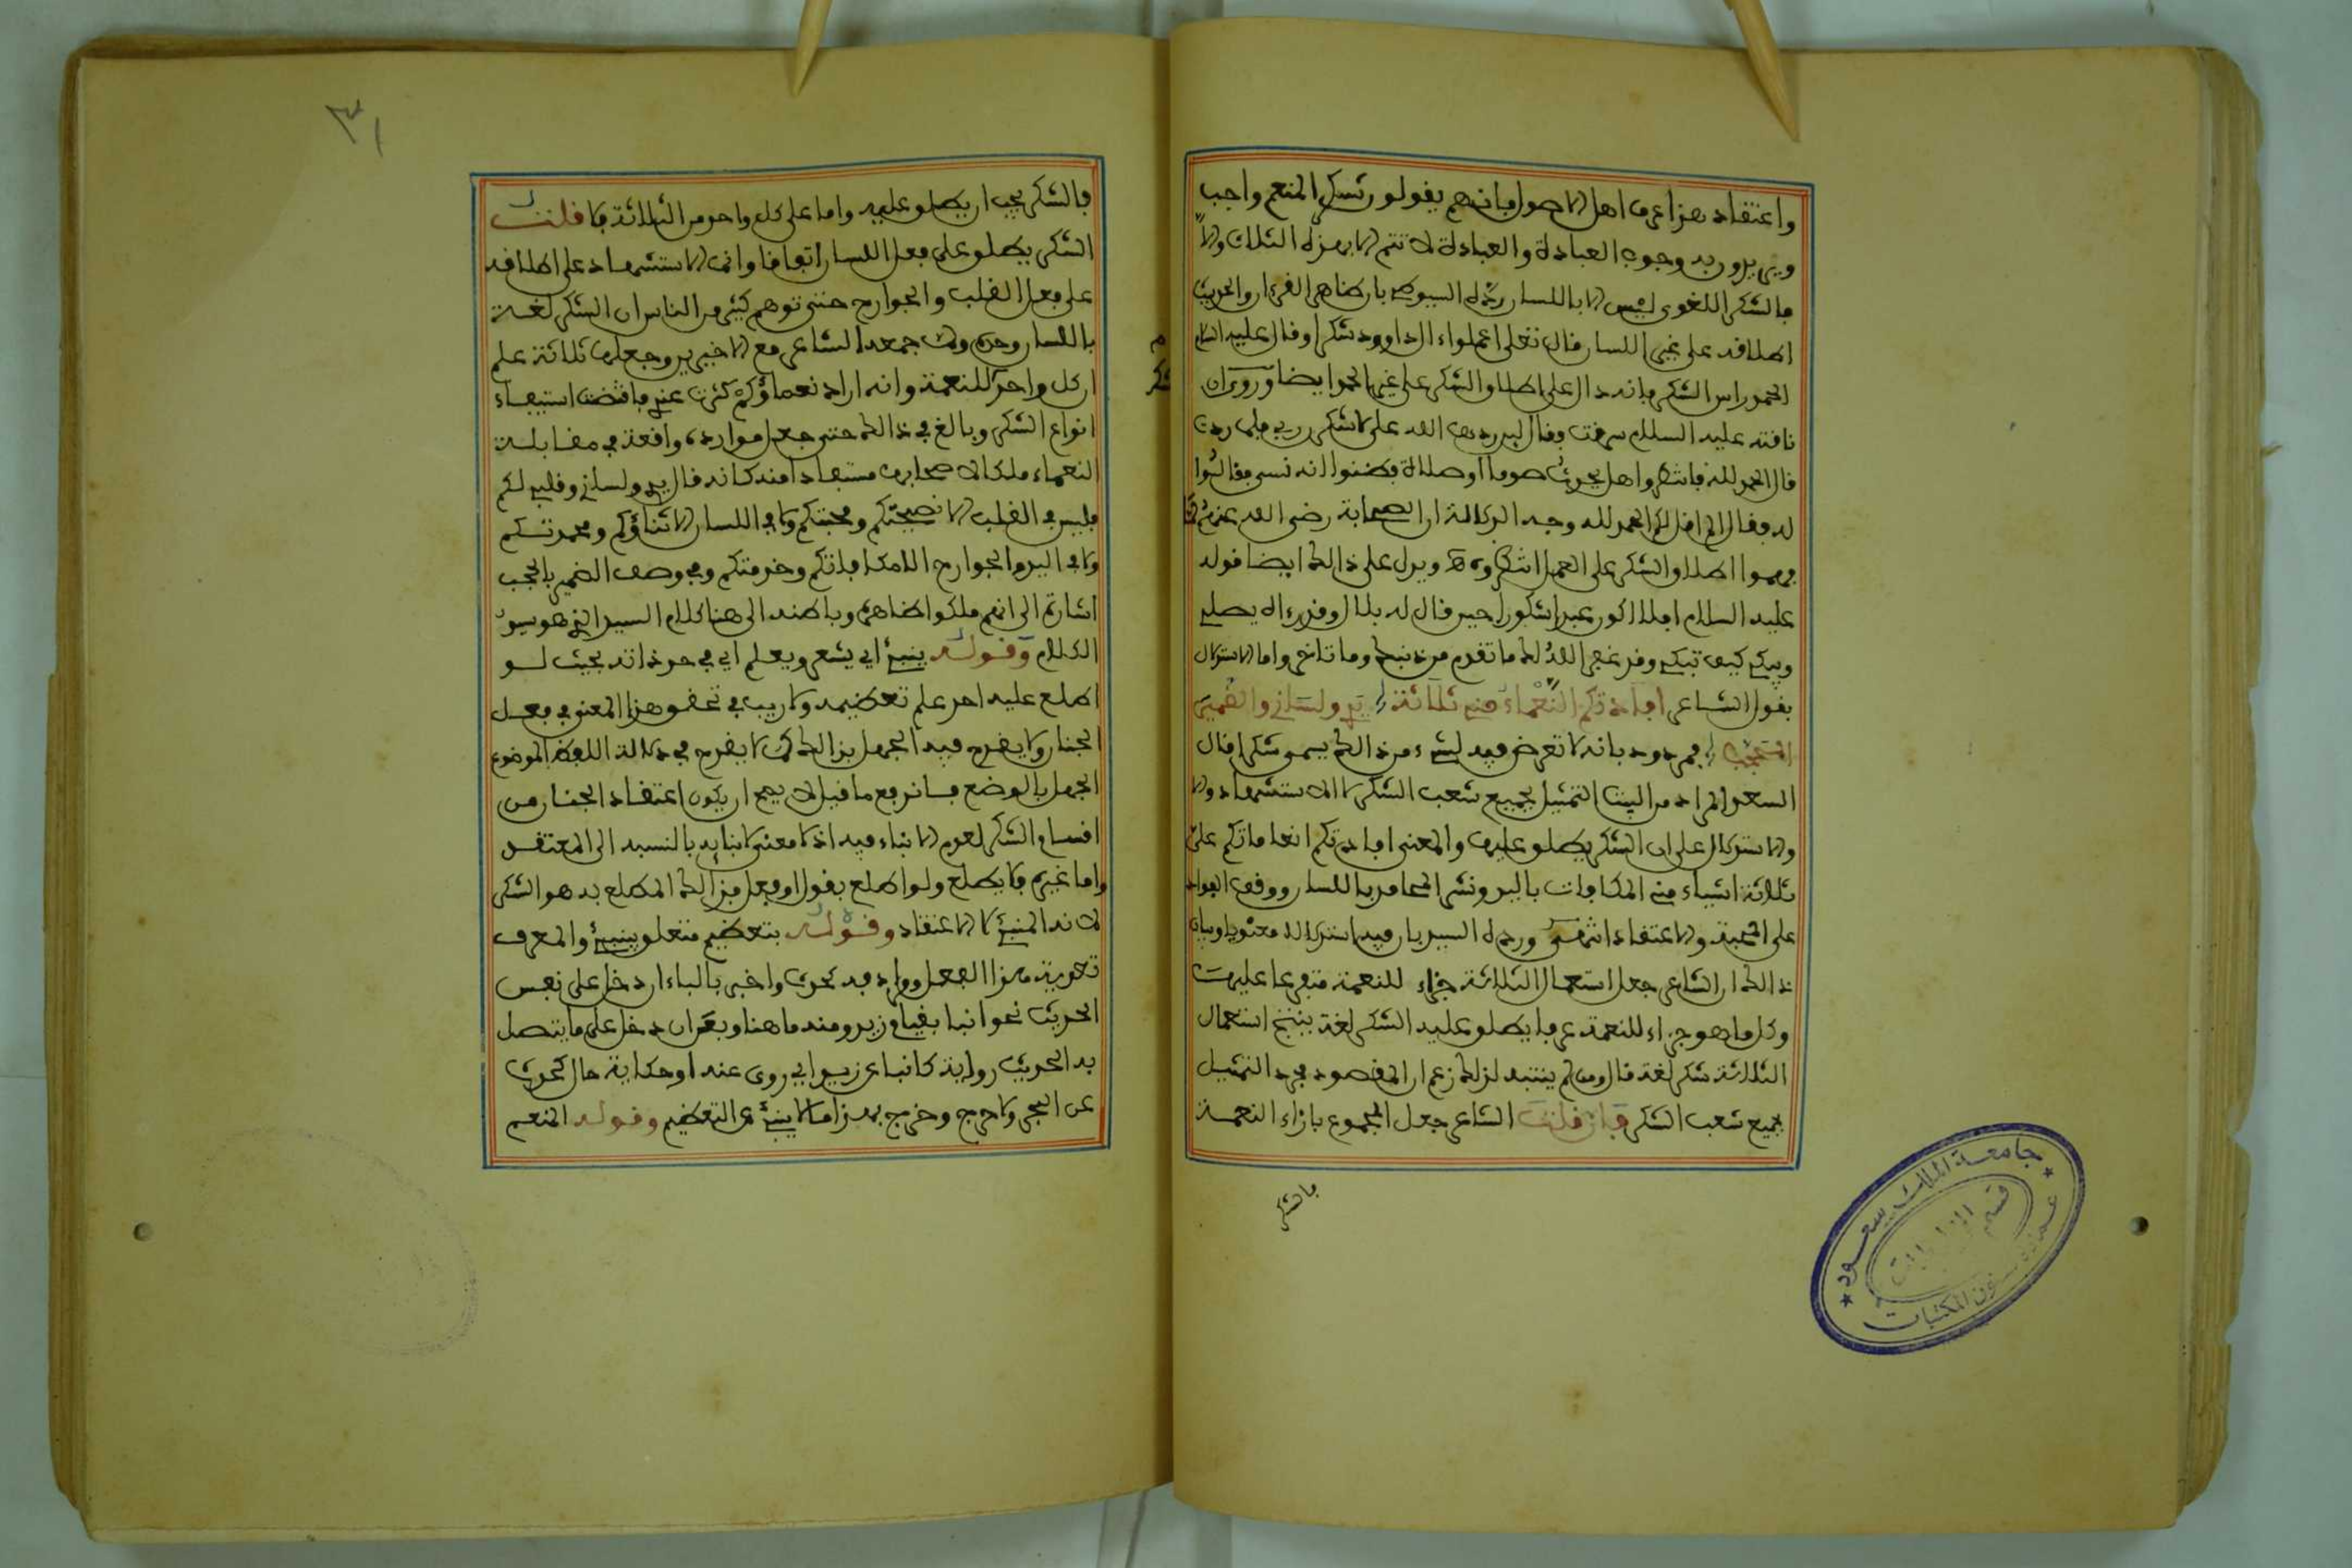 واعتقاد هذا عرف اهل الاصول فانهم يقولون شكر المنعم واجب
ويريدون به وجوب العبادة والعبادة لا تتم الا بهذه الثلاث والا
فالشكر اللغوي ليس الا باللسان رده السيوطي بان ظاهر القرءان والحديث
اطلاقه على غير اللسان قال تعلى اعملوا ءال داوود شكرا وقال عليه السلام
الحمد راس الشكر فانه دال على اطلاق الشكر على غير الحمد ايضا وروي ان
ناقته عليه السلام سرقت وقال لين ردها الله على لاشكرن ربي فلما ردت
قال الحمد لله فانتظروا هل يحدث صوما او صلاة فظنوا انه نسي فقالوا
له فقال الم اقل لكم الحمد لله وجه الدلالة ان الصحابة رضي الله عنهم
فهموا اطلاق الشكر على العمل ويدل على ذالك ايضا قوله
عليه السلام افلا اكون عبدا شكورا حين قال له بلال وقد رءاه يصلي
ويبكي كيف تبكي وقد غفر الله لك ما تقدم من ذنبك وما تاخر واما الاستدلال
بقول الشاعر افادتكم النعماء مني ثلاثة يدي ولساني والضمير
المحجبا فمردود بانه لا تعرض فيه لشيء من ذالك يسمى شكرا قال
السعد المراد من البيت التمثيل لجميع شعب الشكر لا الاستشهاد والا
والاستدلال على ان الشكر يطلق عليها والمعنى افادتكم انعاماتكم علي
ثلاثة اشياء مني المكافات باليد ونشر المحامد باللسان ووقف الفواد
على المحبة والاعتقاد انتهى ورده السيد بان فيه استدلالا معنويا وبيان
ذالك ان الشاعر جعل استعمال الثلاثة جزاء للنعمة متفرعا عليها
وكل ما هو جزاء للنعمة عرفا يطلق عليه الشكر لغة ينتج استعمال
الثلاثة شكر لغة قال ومن لم ينتبه لذلك زعم ان المقصود مجرد التمثيل
لجميع شعب الشكر فان قلت الشاعر جعل المجموع بازاء النعمة
فالشكر
٣١
فالشكر يجب ان يطلق عليه واما على كل واحد من الثلاثة فلا قلت
الشكر يطلق على فعل اللسان اتفاقا وانما الاستشهاد على اطلاقه
على فعل القلب والجوارح حتى توهم كثير من الناس ان الشكر لغة
باللسان وحده ولما جمعه الشاعر مع الاخيرين وجعلها ثلاثة علم
ان كل واحد للنعمة وانه اراد نعماؤكم كثرت عندي فاقتضت استيفاء
انواع الشكر وبالغ في ذالك حتى جعل موارده واقعة في مقابلة
النعماء ملكا لاصحابها مستفادا منه كانه قال يدي ولساني وقلبي لكم
فليس في القلب الا نصيحتكم ومحبتكم ولا في اللسان الا ثناؤكم ومحمدتكم
ولا في اليد والجوارح الا مكافاتكم وخدمتكم وفي وصف الضمير بالمحجب
اشارة الى انهم ملكوا ظاهره وباطنه الى هنا كلام السيد الذي هو سيد
الكلام وقوله ينبئ اي يشعر ويعلم اي في حد ذاته بحيث لو
اطلع عليه احد علم تعظيمه ولا ريب في تحقق هذا المعنى في فعل
الجنان ولا يقدح فيه الجهل بذالك كما لا يقدح في دلالة اللفظ الموضوع
الجهل بالوضع فاندفع ما قيل لا يصح ان يكون اعتقاد الجنان من
اقسام الشكر لعدم الانباء فيه اذ لا معنى لانبايه بالنسبة الى المعتقد
واما غيره فلا يطلع ولو اطلع بقول او فعل فذالك المطلع به هو الشكر
لانه المنبئ لا الاعتقاد وقوله بتعظيم متعلق بينبئ والمعرف
تعدية هذا الفعل وواده فيه بحدث واخبر بالباء ان دخل على نفس
الحديث نحو انبا بقيام زيد ومنه ما هنا وبعن ان دخل على ما يتصل
به الحديث رواية كانبا عن زيد اي روى عنه او حكاية حال كحدث
عن البحر ولا حرج وخرج بهذا ما لا ينبئ عن التعظيم وقوله المنعم
جامعة الملك سعود
قسم المخطوطات
عمادة شؤون المكتبات